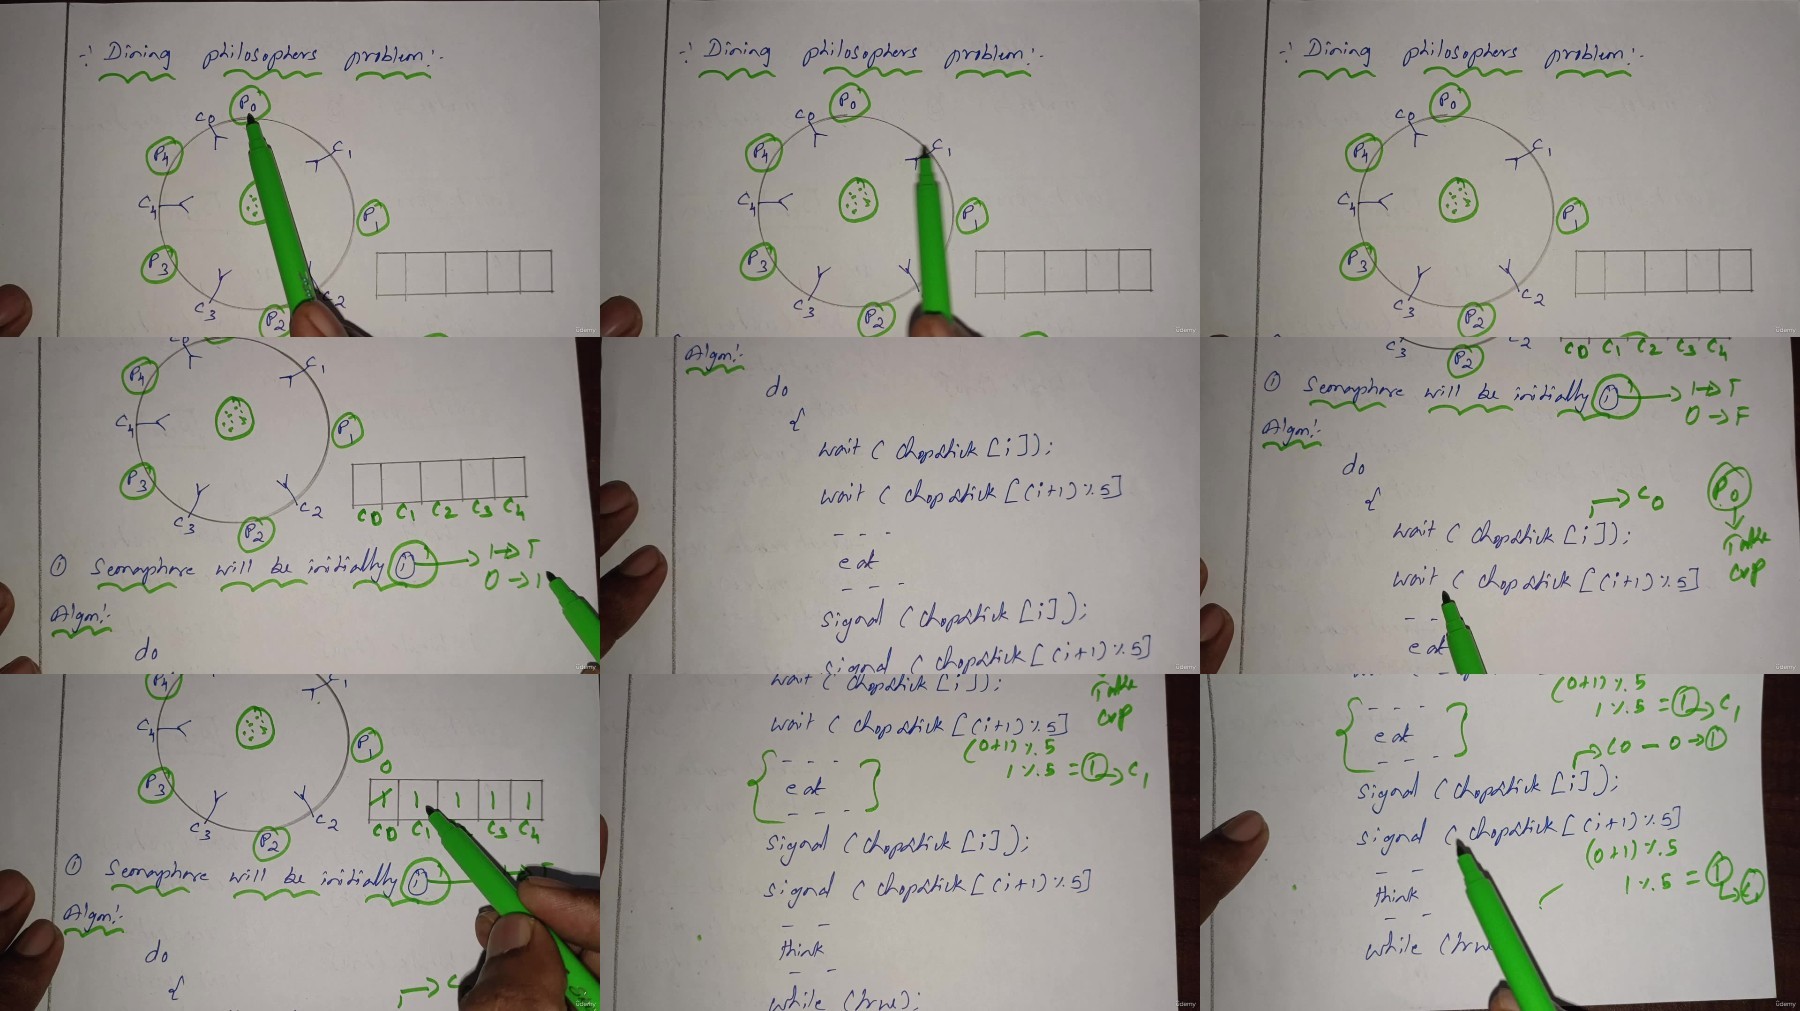 Dining philosophers problem:-
P0
C0
C1
P4
C4
P1
P3
C3
C2
P2
ûdemy
Dining philosophers problem:-
P0
C0
C1
P4
C4
P1
P3
C3
C2
P2
ûdemy
Dining philosophers problem:-
P0
C0
C1
P4
C4
P1
P3
C3
C2
P2
ûdemy
C0
C1
P4
C4
P1
P3
C3
C2
P2
C0 C1 C2 C3 C4
① Semaphore will be initially ① → 1→T
0→
Algm:-
do
ûdemy
Algm:-
do
{
wait (chopstick [i]);
wait (chopstick [(i+1)%5]
- - -
eat
- - -
signal (chopstick [i]);
signal (chopstick [(i+1)%5]
ûdemy
C3
P2
C2
C0 C1 C2 C3 C4
① Semaphore will be initially ① → 1→T
0→F
Algm:-
do
{
→ C0
P0
wait (chopstick [i]);
Take
cop
wait (chopstick [(i+1)%5]
- -
eat
ûdemy
P4
C1
C4
P1
0
P3
C3
C2
P2
1 1 1 1 1
C0 C1 C3 C4
① Semaphore will be initially ①
Algm:-
do
{
→ C
ûdemy
wait (chopstick [i]);
Take
cop
wait (chopstick [(i+1)%5]
(0+1)%5
1%5 = ① → C1
{ - - -
eat }
- - -
signal (chopstick [i]);
signal (chopstick [(i+1)%5]
- -
think
- -
while (true);
ûdemy
(0+1)%5
1%5 = ① → C1
{ - - -
eat }
- - -
→ C0 - 0→①
signal (chopstick [i]);
signal (chopstick [(i+1)%5]
(0+1)%5
1%5 = ①
- -
think
- -
while (tru
ûdemy